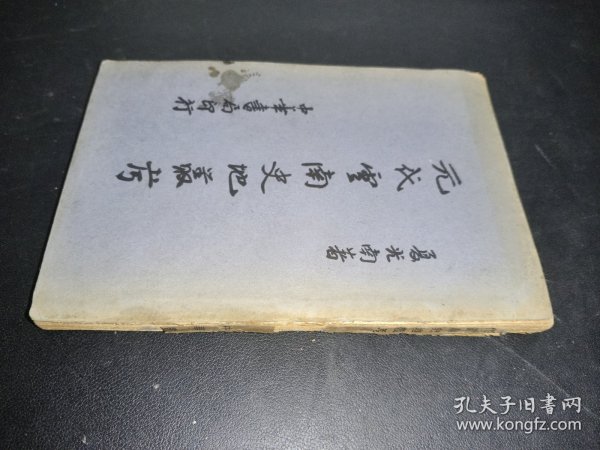 元代雲南史地叢攷
夏光南著
中華書局印行
孔夫子旧书网
www.kongfz.com